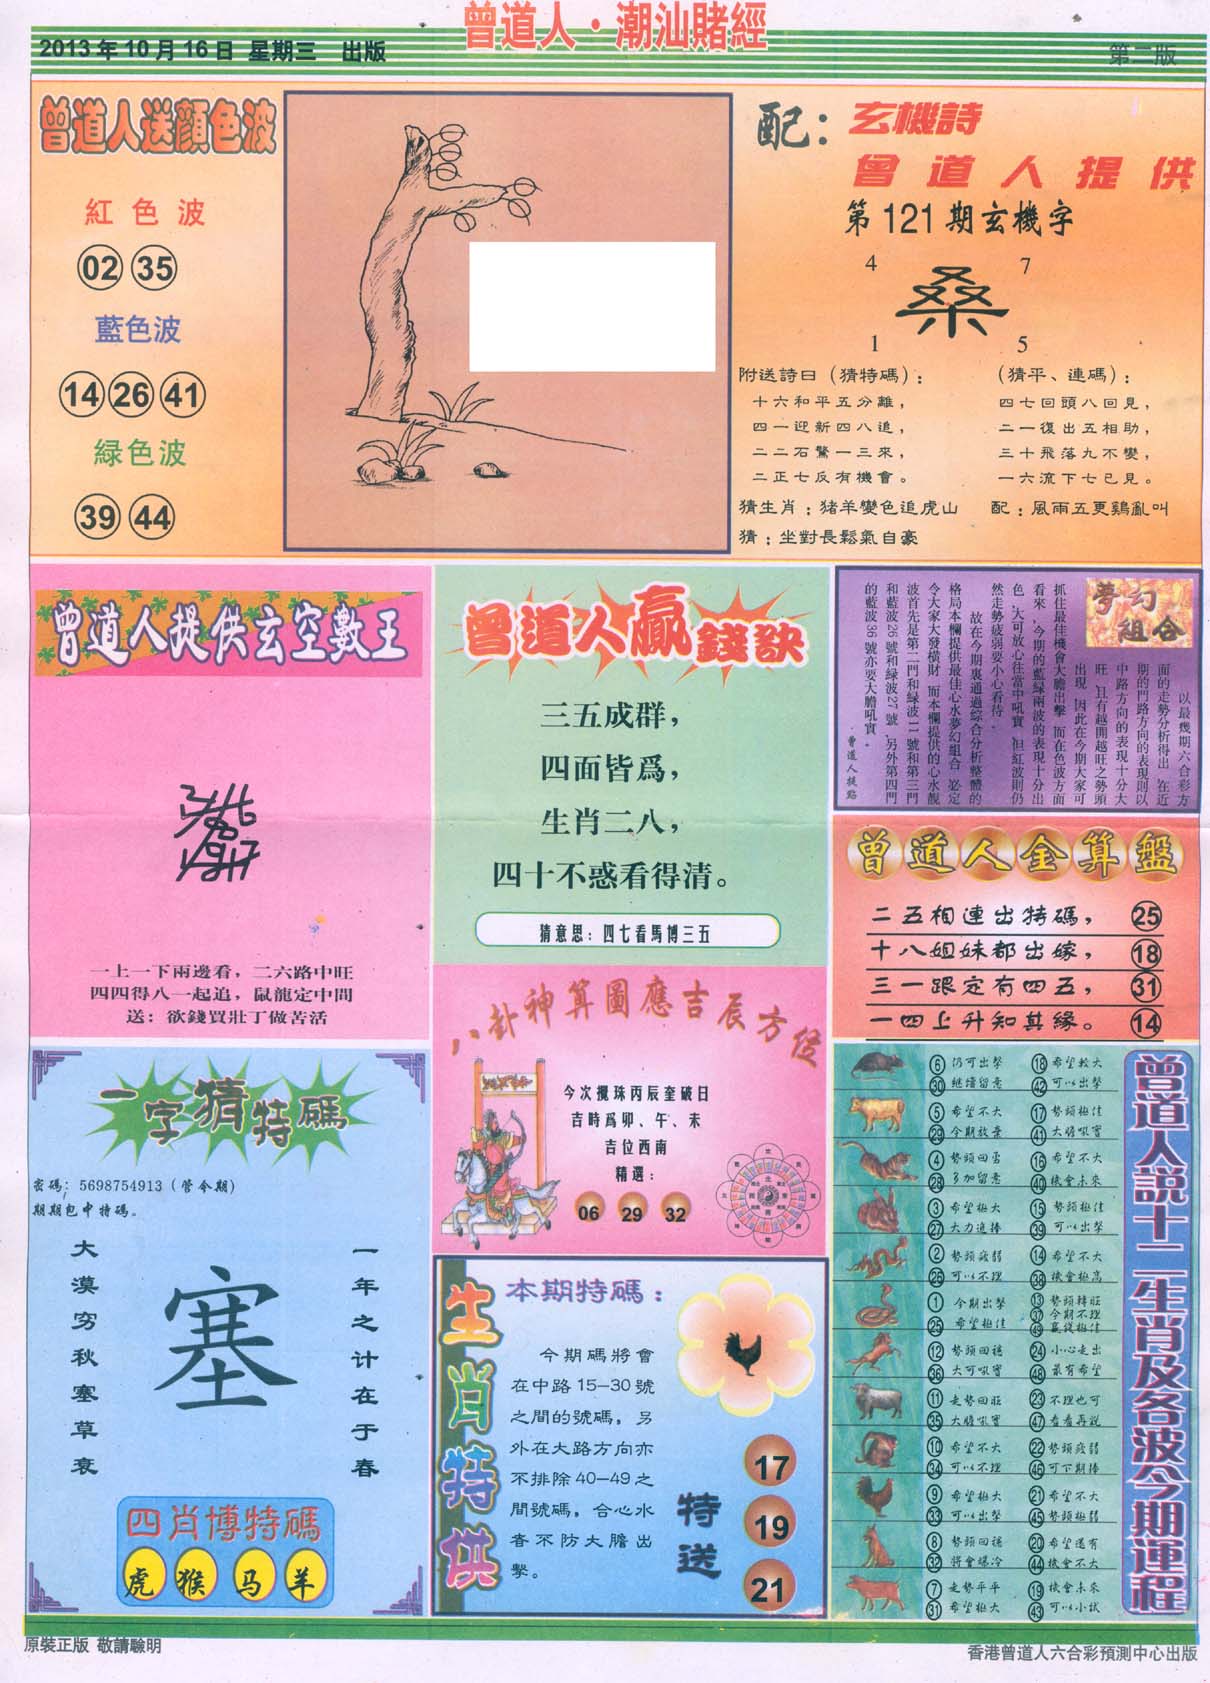 曾道人·潮汕賭經
2013年10月16日 星期三 出版
第二版
曾道人送顔色波
紅色波
02 35
藍色波
14 26 41
緑色波
39 44
配：玄機詩
曾道人提供
第121期玄機字
4 7
桑
1 5
附送詩日（猜特碼）：
十六和平五分離，
四一迎新四八追，
二二石驚一三來，
二正七反有機會。
（猜平、連碼）：
四七回頭八回見，
二一復出五相助，
三十飛落九不變，
一六流下七已見。
猜生肖：猪羊變色追虎山
配：風雨五更鷄亂叫
猜：坐對長鬆氣自豪
曾道人提供玄空數王
一上一下兩邊看，二六路中旺
四四得八一起追，鼠龍定中間
送：欲錢買壯丁做苦活
曾道人贏錢訣
三五成群，
四面皆爲，
生肖二八，
四十不惑看得清。
猜意思：四七看馬博三五
夢幻組合
以最幾期六合彩方
面的走勢分析得出 在近
期的門路方向的表現則以
中路方向的表現十分大
旺 且有越開越旺之勢頭
出現 因此在今期大家可
抓住最佳機會大膽出擊 而在色波方面
看來，今期的藍緑兩波的表現十分出
色 大可放心往當中吼實 但紅波則仍
然走勢疲弱要小心看待。
故在今期裏通過綜合分析整體的
格局本欄提供最佳心水夢幻組合 必定
令大家大發横財 而本欄提供的心水靚
波首先是第二門和緑波11號和第三門
和藍波26號和緑波27號，另外第四門
的藍波36號亦要大膽吼實。
曾道人提點
曾道人金算盤
二五相連出特碼， 25
十八姐妹都出嫁， 18
三一跟定有四五， 31
一四上升知其緣。 14
一字猜特碼
密碼：5698754913（管今期）
期期包中特碼。
一年之计在于春
塞
大漠穷秋塞草衰
四肖博特碼
虎 猴 马 羊
八卦神算圖應吉辰方位
今次攪珠丙辰奎破日
吉時爲卯、午、未
吉位西南
精選：
06 29 32
生肖特供
本期特碼：
今期碼將會
在中路15—30號
之間的號碼，另
外在大路方向亦
不排除40—49之
間號碼，合心水
者不防大膽出
擊。
特送
17
19
21
曾道人説十二生肖及各波今期運程
6 仍可出擊 18 希望較大
30 繼續留意 42 可以出擊
5 希望不大 17 勢頭極佳
29 今期放棄 41 大膽吼實
4 勢頭回勇 16 希望不大
28 多加留意 40 機會未來
3 希望極大 15 勢頭極佳
27 大力追捧 39 可以出擊
2 勢頭疲弱 14 希望不大
26 可以不理 38 機會極高
1 今期出擊 13 勢頭轉旺
37 今期不理
25 希望極佳 49 贏錢極佳
12 勢頭回穩 24 小心走出
36 大可吼實 48 最有希望
11 走勢回旺 23 不理也可
35 大膽吼實 47 看看再説
10 希望不大 22 勢頭疲弱
34 可以不理 46 可下期捧
9 希望極大 21 希望不大
33 可以出擊 45 勢頭極弱
8 勢頭回穩 20 希望還有
32 將會爆冷 44 機會不大
7 走勢平平 19 機會未來
31 希望極大 43 可以小試
原裝正版 敬請驗明
香港曾道人六合彩預測中心出版